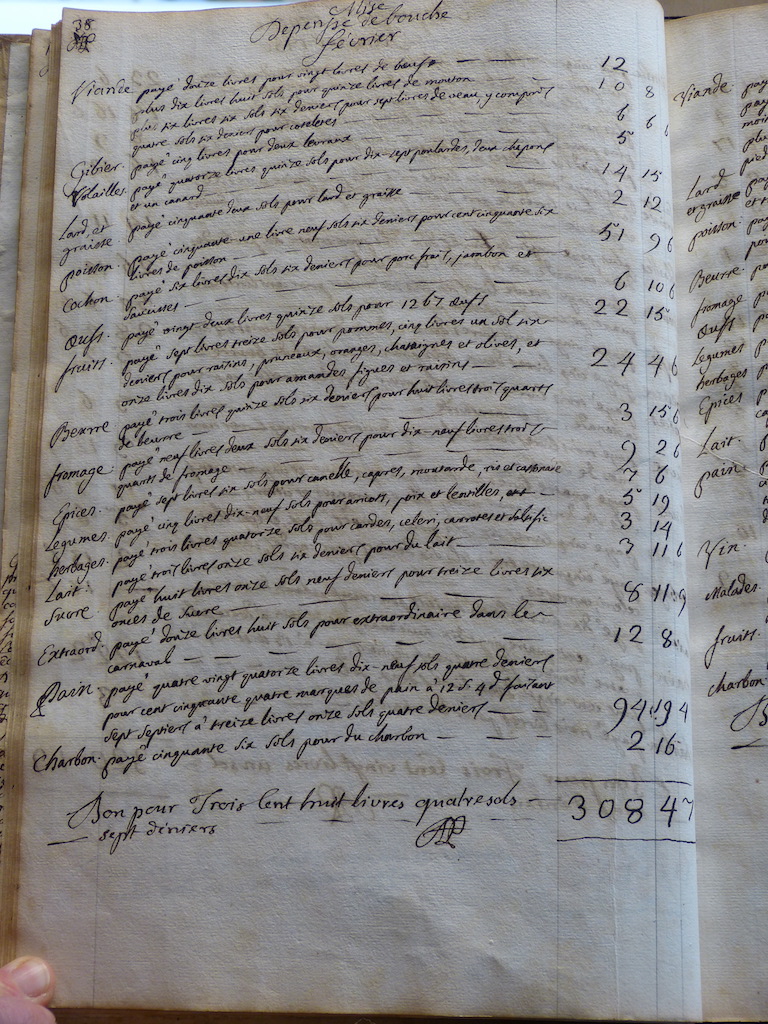 38
Mise
Depense de bouche
février
Viande payé douze livres pour vingt livres de boeuf 12
plus dix livres huit sols pour quinze livres de mouton 10 8
plus six livres six sols six deniers pour sept livres de veau, y compris
quatre sols six deniers pour coteletes 6 6 6
Gibier. payé cinq livres pour deux levraux 5
Volailles. payé quatorze livres quinze sols pour dix-sept poulardes, deux chapons
et un canard 14 15
Lard, et payé cinquante deux sols pour lard et graisse 2 12
graisse.
poisson payé cinquante une livre neuf sols six deniers pour cent cinquante six
livres de poisson 51 9 6
Cochon. payé six livres dix sols six deniers pour porc frais, jambon et
saucisses 6 10 6
Œufs. payé vingt deux livres quinze sols pour 1267 œufs 22 15
fruits. payé sept livres treize sols pour pommes, cinq livres un sol six
deniers pour raisins, pruneaux, oranges, chataignes et olives, et
onze livres dix sols pour amandes figues et raisins 24 4 6
Beurre payé trois livres quinze sols six deniers pour huit livres trois quarts
de beurre 3 15 6
fromage payé neuf livres deux sols six deniers pour dix-neuf livres trois
quarts de fromage 9 2 6
Epices. payé sept livres six sols pour canelle, capres, moutarde, ris et 7 6
Legumes. payé cinq livres dix-neuf sols pour aricots, poix et lentilles, 5 19
herbages. payé trois livres quatorze sols pour cardes, celeri, carrotes et salsific 3 14
Lait. payé trois livres onze sols six deniers pour du lait 3 11 6
Sucre payé huit livres onze sols neuf deniers pour treize livres six
onces de sucre 8 11 9
Extraord. payé douze livres huit sols pour extraordinaire dans le
carnaval 12 8
Pain. payé quatre vingt quatorze livres dix-neuf sols quatre deniers
pour cent cinquante quatre marques de pain à 12 s. 4 d faisant
sept septiers à treize livres onze sols quatre deniers 94 19 4
Charbon. payé cinquante six sols pour du charbon 2 16
Bon pour Trois Cent huit livres quatre sols 308 4 7
sept deniers
Viande
Lard
et graisse
poisson
Beurre
fromage
Œufs
Legumes
herbages
Epices
Lait.
pain
Vin.
Malades.
fruits.
charbon